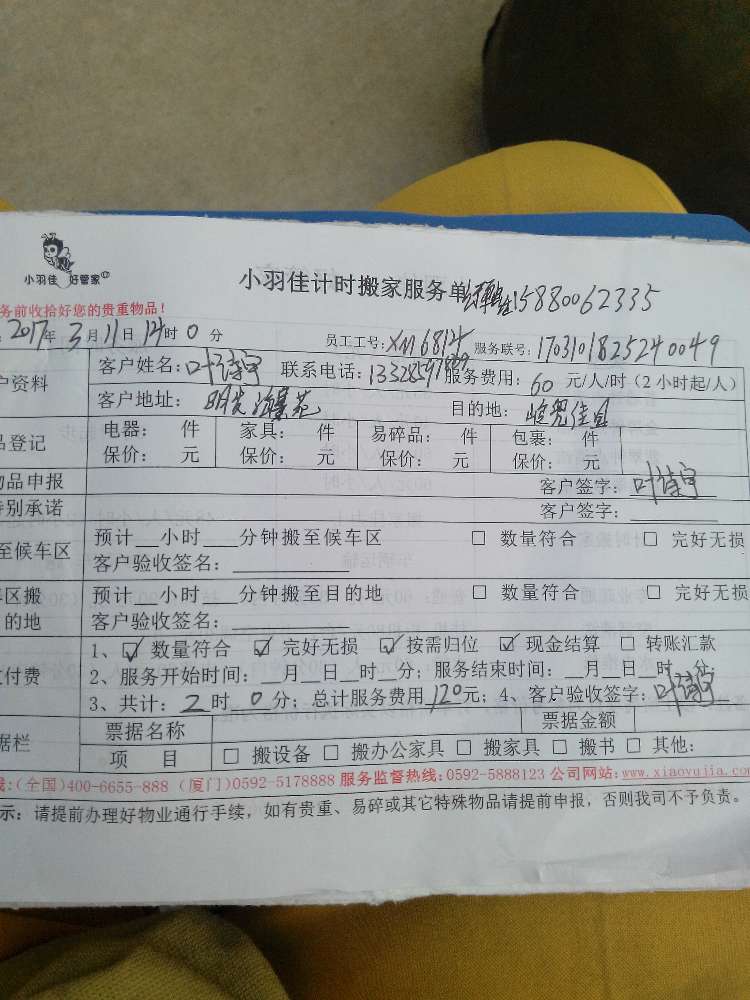 小羽佳 好管家
小羽佳计时搬家服务单 15880062335
务前收拾好您的贵重物品！
2017年3月11日12时0分 员工工号：XM6814 服务联号：1703101825240049
户资料 客户姓名：叶诗宇 联系电话： 服务费用：60 元/人/时（2小时起/人）
客户地址：明发海景苑 目的地：
品登记 电器： 件 家具： 件 易碎品： 件 包裹： 件
保价： 元 保价： 元 保价： 元 保价： 元
物品申报 客户签字：叶诗宇
特别承诺 客户签字：
至候车区 预计__小时__分钟搬至候车区 □ 数量符合 □ 完好无损
客户验收签名：
车区搬 预计__小时__分钟搬至目的地 □ 数量符合 □ 完好无损
目的地 客户验收签名：
付费 1、☑ 数量符合 ☑ 完好无损 ☑ 按需归位 ☑ 现金结算 □ 转账汇款
2、服务开始时间：__月__日__时__分；服务结束时间：__月__日__时__分；
3、共计：2时0分；总计服务费用120元；4、客户验收签字：叶诗宇
据栏 票据名称 票据金额
项 目 □ 搬设备 □ 搬办公家具 □ 搬家具 □ 搬书 □ 其他：
线：(全国)400-6655-888 (厦门)0592-5178888 服务监督热线：0592-5888123 公司网站：www.xiaoyujia.com
示：请提前办理好物业通行手续，如有贵重、易碎或其它特殊物品请提前申报，否则我司不予负责。